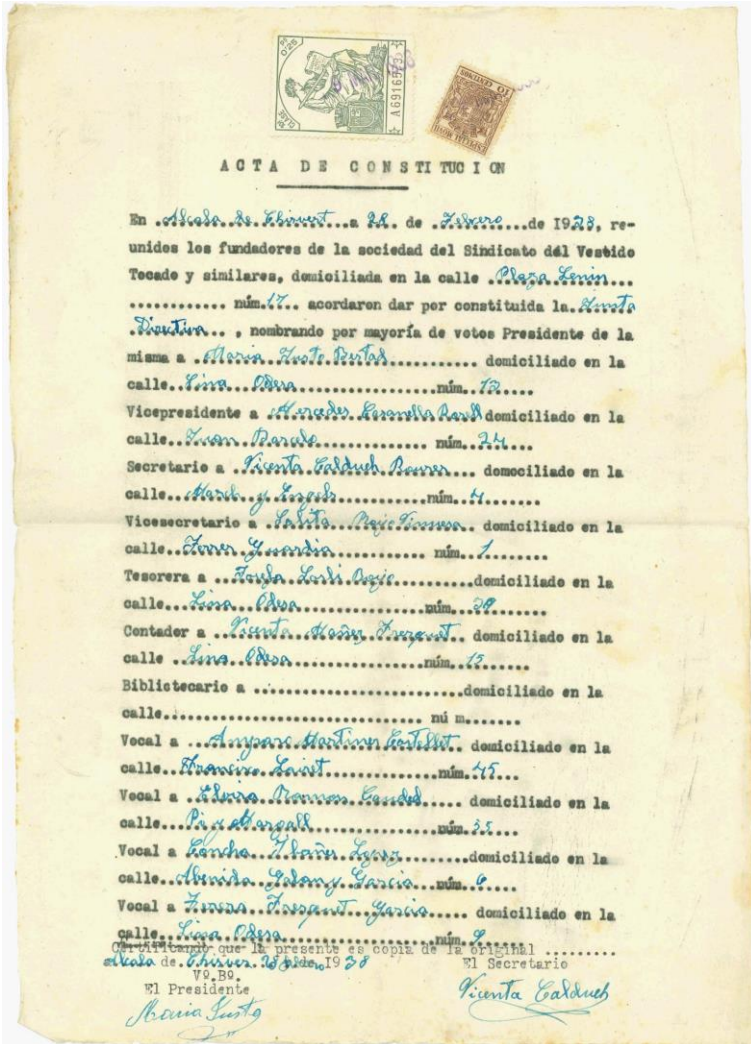 Pt 0'25
CLASE
A6916573
ESPECIAL MOVIL
10 CENTIMOS
ACTA DE CONSTITUCION
En .Alcala de Chisvert..a 28. de .Febrero....de 1938, re-
unidos los fundadores de la sociedad del Sindicato del Vestido
Tocado y similares, domiciliada en la calle ..Plaza Lenin...
............ núm.17.. acordaron dar por constituida la.Junta
.Directiva... , nombrando por mayoría de votos Presidente de la
misma a ..Maria Justo Bertad............ domiciliado en la
calle..Lina Odesa................núm. 12....
Vicepresidente a .Mercedes Casanella Rosell domiciliado en la
calle..Juan Barcelo............... núm..24....
Secretario a .Vicenta Calduch Roures... domociliado en la
calle..March y Engels............núm..4.......
Vicesecretario a .Lolita Rojo.. domiciliado en la
calle..Ferrer Guardia............. núm..1........
Tesorera a ..........domiciliado en la
calle...Lina Odesa................núm..........
Contador a .Vicenta Mañez Frezquet.. domiciliado en la
calle ..Lina Odesa................núm..15......
Bibliotecario a ......................domiciliado en la
calle........................... nú m.......
Vocal a ...Amparo Martinez Castellet.. domiciliado en la
calle..Francisco Lairet...........núm..45...
Vocal a .Elvira Ramon Caudet..... domiciliado en la
calle...Pi y Margall..............núm.35....
Vocal a .Concha Ibañez Lopez.........domiciliado en la
calle..Abenida Galan y Garcia...núm. 6....
Vocal a .Teresa Fresquet Garcia..... domiciliado en la
calle..Lina Odesa................núm..9......
Certificando que la presente es copia de la original .........
Alcala de Chisver. 28 Febrero 1938
El Secretario
Vº.Bº.
El Presidente
Maria Justo
Vicenta Calduch